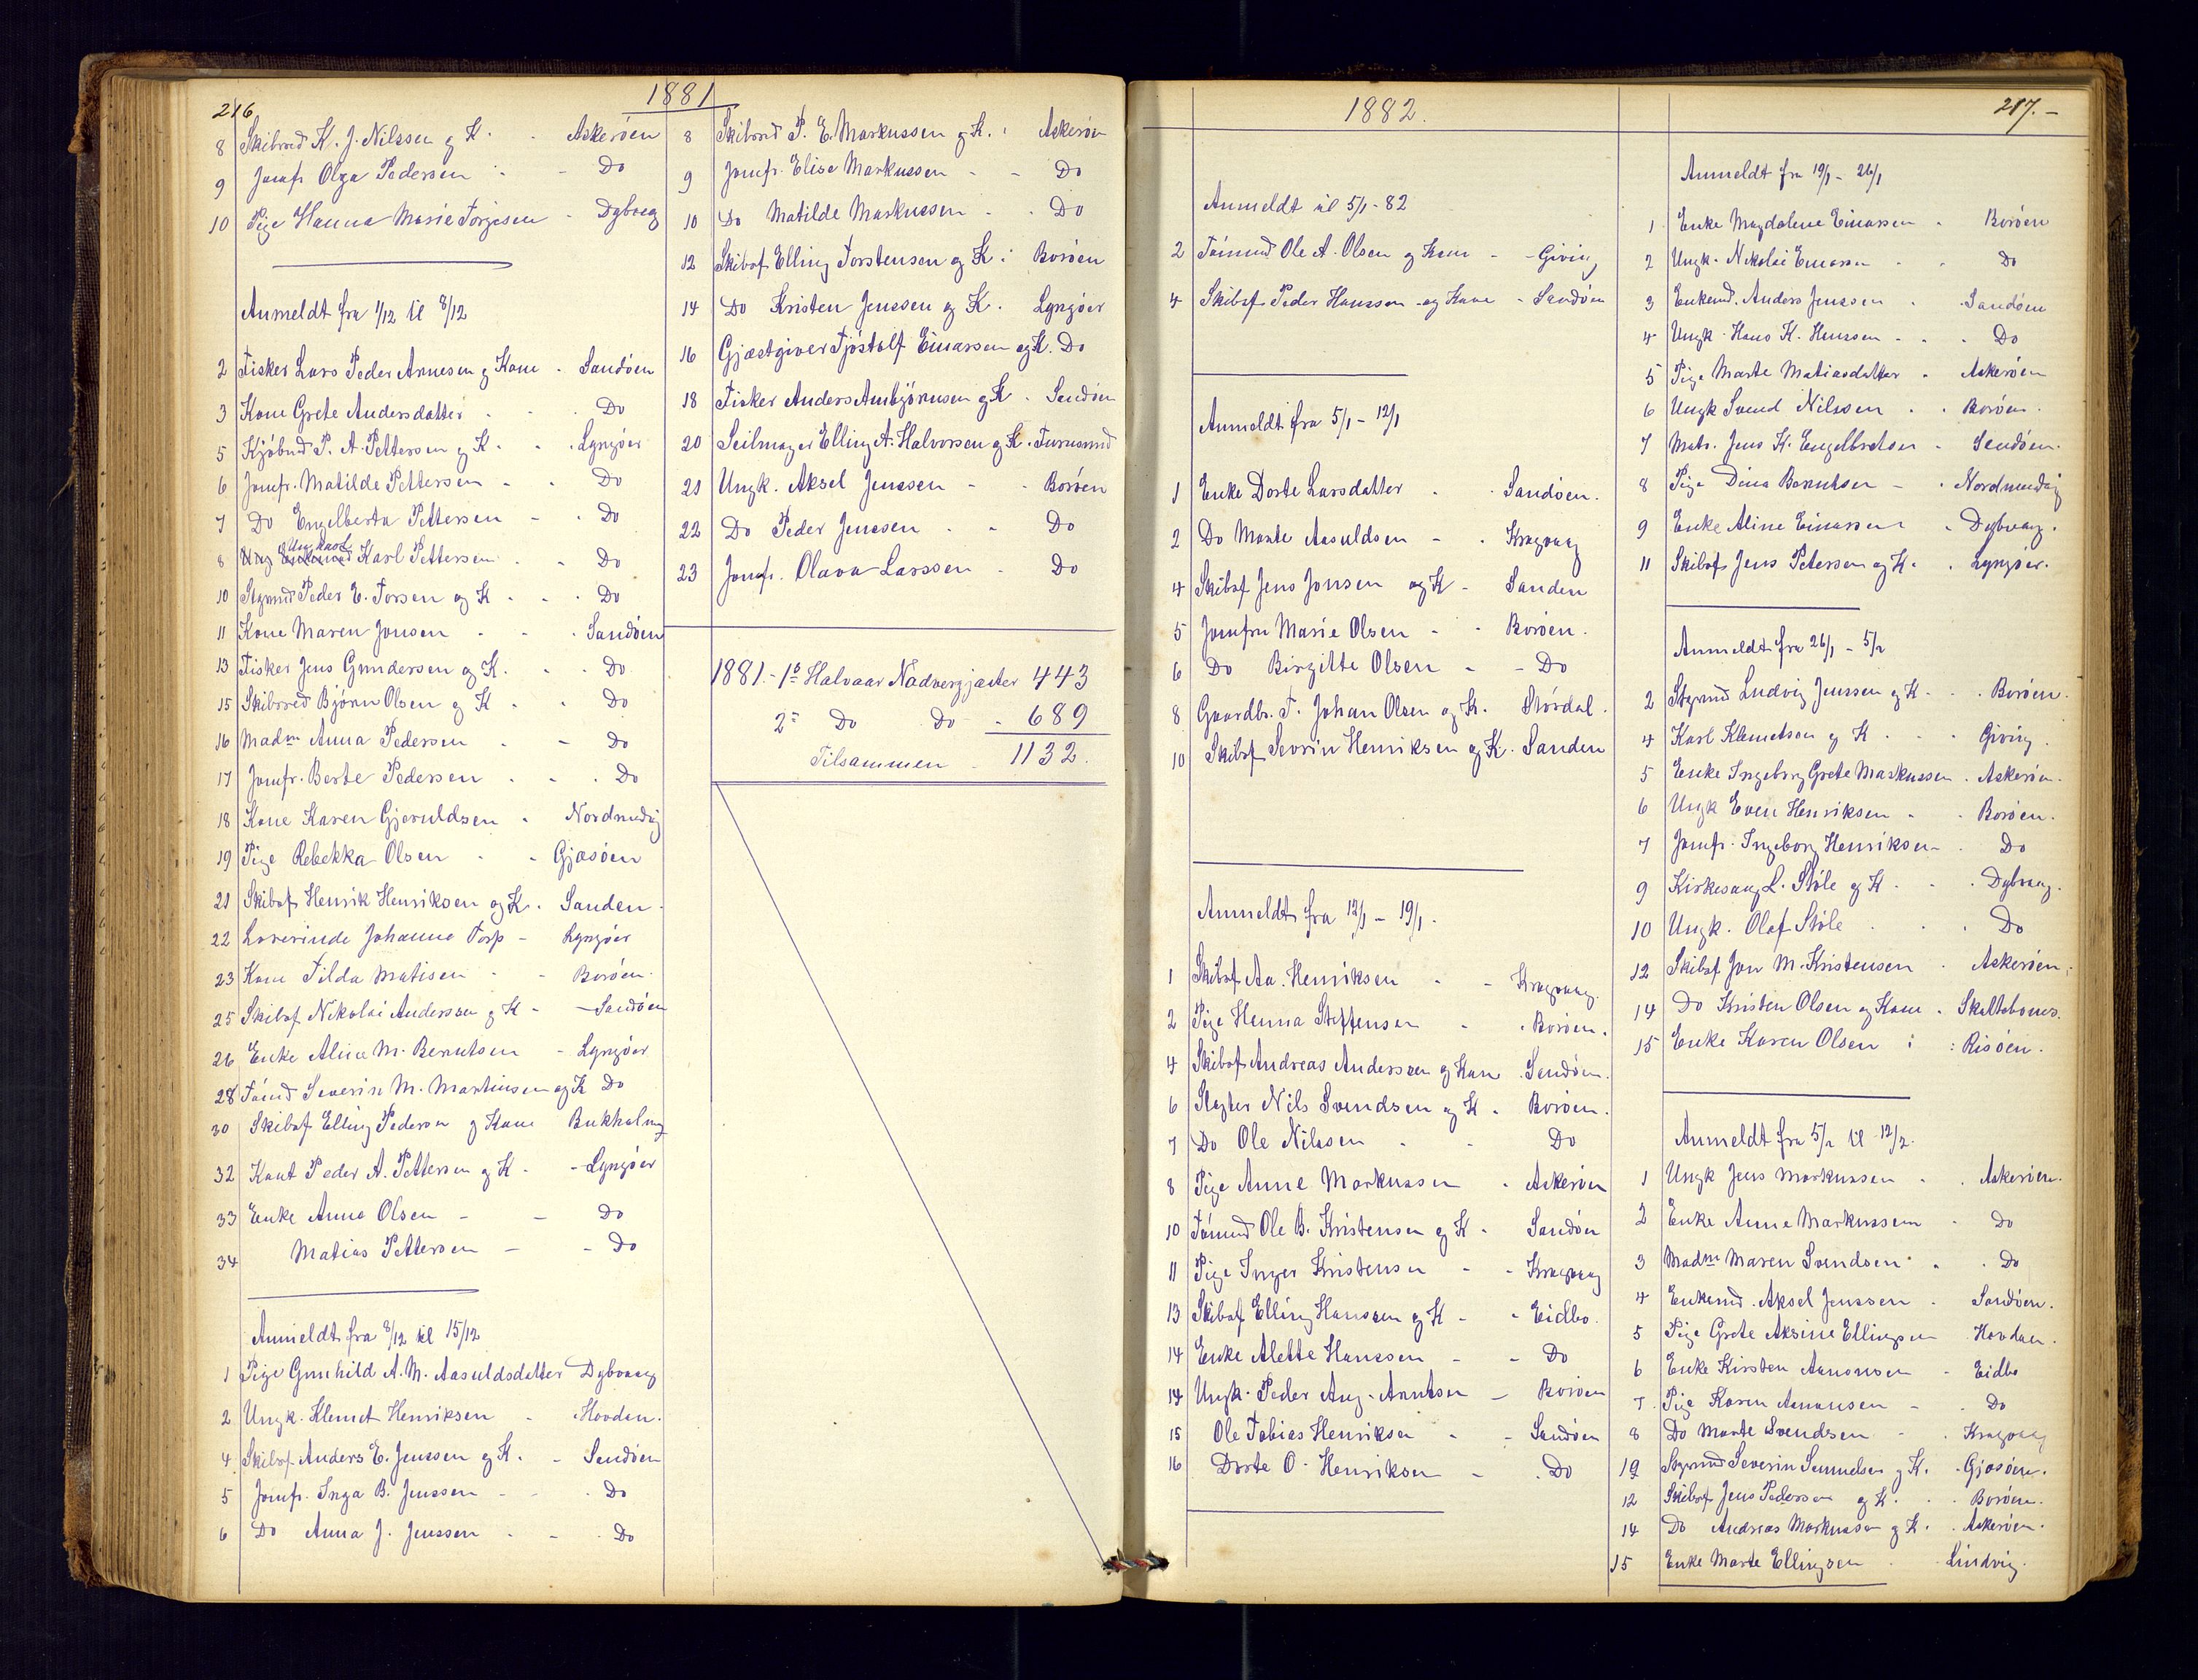 216
1881
8 Skibsred K. J. Nilssen og K. - Askerøen
9 Jomfr. Olga Pedersen - - Do
10 Pige Hanna Marie Torjesen - Dybvaag
Anmeldt fra 1/12 til 8/12
2 Fisker Lars Peder Arnesen og Kone - Sandøen
3 Kone Grete Andersdatter - - Do
5 Kjøbmd P. A. Pettersen og K. - Lyngøer
6 Jomfr. Matilde Pettersen - - Do
7 Do Engelberta Pettersen - - Do
8 Ungkarl Karl Pettersen - - Do
10 Styrmd Peder E. Torsen og K - - Do
11 Kone Maren Jonsen - - Sandøen
13 Fisker Jens Gundersen og K. - - Do
15 Skibsred Bjørn Olsen og K - - Do
16 Madm Anna Pedersen - - Do
17 Jomfr. Berte Pedersen - - Do
18 Kone Karen Gjeruldsen - Nordmedvig
19 Pige Rebekka Olsen - - Gjæsøen
21 Skibsf Henrik Henriksen og K. - Sanden
22 Lærerinde Johanne Torp - Lyngøer
23 Kone Tilda Matisen - - Borøen
25 Skibsf Nikolai Anderssen og K - - Sandøen
26 Enke Aline M. Berntsen - Lyngøer
28 Tømd Severin M. Martinsen og K Do
30 Skibsf Elling Pedersen og Kone Bukholmg
32 Knut Peder A. Pettersen og K - - Lyngøer
33 Enke Anna Olsen - - Do
34 Matias Pettersen - - Do
Anmeldt fra 8/12 til 15/12
1 Pige Gunhild A. M. Aasuldsdatter Dybvaag
2 Ungk. Klemet Henriksen - Hovdan.
4 Skibsf Anders E. Jenssen og K. - Sandøen
5 Jomfr. Inga B. Jenssen - - Do
6 Do Anna J. Jenssen - - Do
8 Skibsred P. E. Markussen og K. - Askerøen
9 Jomfr. Elise Markussen - - Do
10 Do Matilde Markussen - - Do
12 Skibsf Elling Torstensen og K - Borøen
14 Do Kristen Jenssen og K. Lyngøer
16 Gjæstgiver Tjøstolf Einarssen og K. Do
18 Fisker Anders Ambjørnsen og K - Sandøen
20 Seilmager Elling A. Halvorsen og K - Furusund
21 Ungk. Aksel Jenssen - - Borøen
22 Do Peder Jenssen - - Do
23 Jomfr. Olava Larssen - Do
1881. - 1s Halvaar Nadvergjæster 443
2s Do Do - 689
Tilsammen - 1132.
1882.
Anmeldt til 5/1 - 82
2 Tømmd Ole A. Olsen og Kone - - Giving
4 Skibsf. Peder Hanssen og Kone - Sandøen
Anmeldt fra 5/1 - 12/1
1 Enke Dorte Larsdatter - - Sandøen.
2 Do Marte Aasuldsen - - Kragvaag
4 Skibsf Jens Jonsen og K - Sanden
5 Jomfru Marie Olsen - - Borøen.
6 Do Birgitte Olsen - - Do
8 Gaardbr. T. Johan Olsen og K. Størdal.
10 Skibsf Severin Henriksen og K. Sanden
Anmeldt fra 12/1 - 19/1.
1 Skibsf Aa. Henriksen - - Kragvaag.
2 Pige Hanna Steffensen - - Borøen.
4 Skibsf Andreas Anderssen og Kone - Sandøen.
6 Slagter Nils Svendsen og K. Borøen.
7 Do Ole Nilssen - - Do
8 Pige Anne Markussen - Askerøen
10 Tømmd Ole B. Kristensen og K - Sandøen
11 Pige Inger Kristensen - - Kragvaag
13 Skibsf Elling Hanssen og K - - Eidbo.
14 Enke Alette Hanssen - - Do
14 Ungk. Peder Aug. Arntsen - Borøen
15 Ole Tobias Henriksen - - Sandøen
16 Dorte O. Henriksen - - Do
217. -
Anmeldt fra 19/1 - 26/1
1 Enke Magdalene Einarssen - Borøen
2 Ungk. Nikolai Einarssen - - Do
3 Enkemd. Anders Jenssen - Sandøen
4 Ungk. Hans K. Hanssen - - Do
5 Pige Marte Matiasdatter - Askerøen
6 Ungk Svend Nilssen - - Borøen.
7 Matr. Jens K. Engelbretsen - Sandøen.
8 Pige Dina Berntsen - - Nordmedvig
9 Enke Aline Einarssen - Dybvaag.
11 Skibsf Jens Petersen og K. - Lyngøer.
Anmeldt fra 26/1 - 5/2
2 Styrmd Ludvig Jenssen og K - - Borøen.
4 Karl Klemetsen og K - - Giving.
5 Enke Ingeborg Grete Markussen - Askerøen.
6 Ungk Even Henriksen - - Borøen.
7 Jomfr. Ingeborg Henriksen - Do
9 Kirkesang L. Støle og K - - Dybvaag.
10 Ungk. Olaf Støle - - Do
12 Skibsf Jon M. Kristensen - Askerøen.
14 Do Kristen Olsen og Kone - Skaltebones.
15 Enke Karen Olsen : : Risøen.
Anmeldt fra 5/2 til 12/2.
1 Ungk Jens Markussen - - Askerøen.
2 Enke Anne Markussen - Do
3 Madm Maren Svendsen - - Do
4 Enkemd. Aksel Jenssen - Sandøen.
5 Pige Grete Aksine Ellingsen Hovdan.
6 Enke Kirsten Aanonsen - Eidbo
7. Pige Karen Aanonsen - - Do
8 Do Marte Svendsen - - Kragvaag
10 Styrmd Severin Samuelsen og K. - Gjæsøen.
12 Skibsf Jens Pedersen og K. - - Borøen.
14 Do Andreas Markussen og K. - Askerøen.
15 Enke Marte Ellingsen - Lindvig.